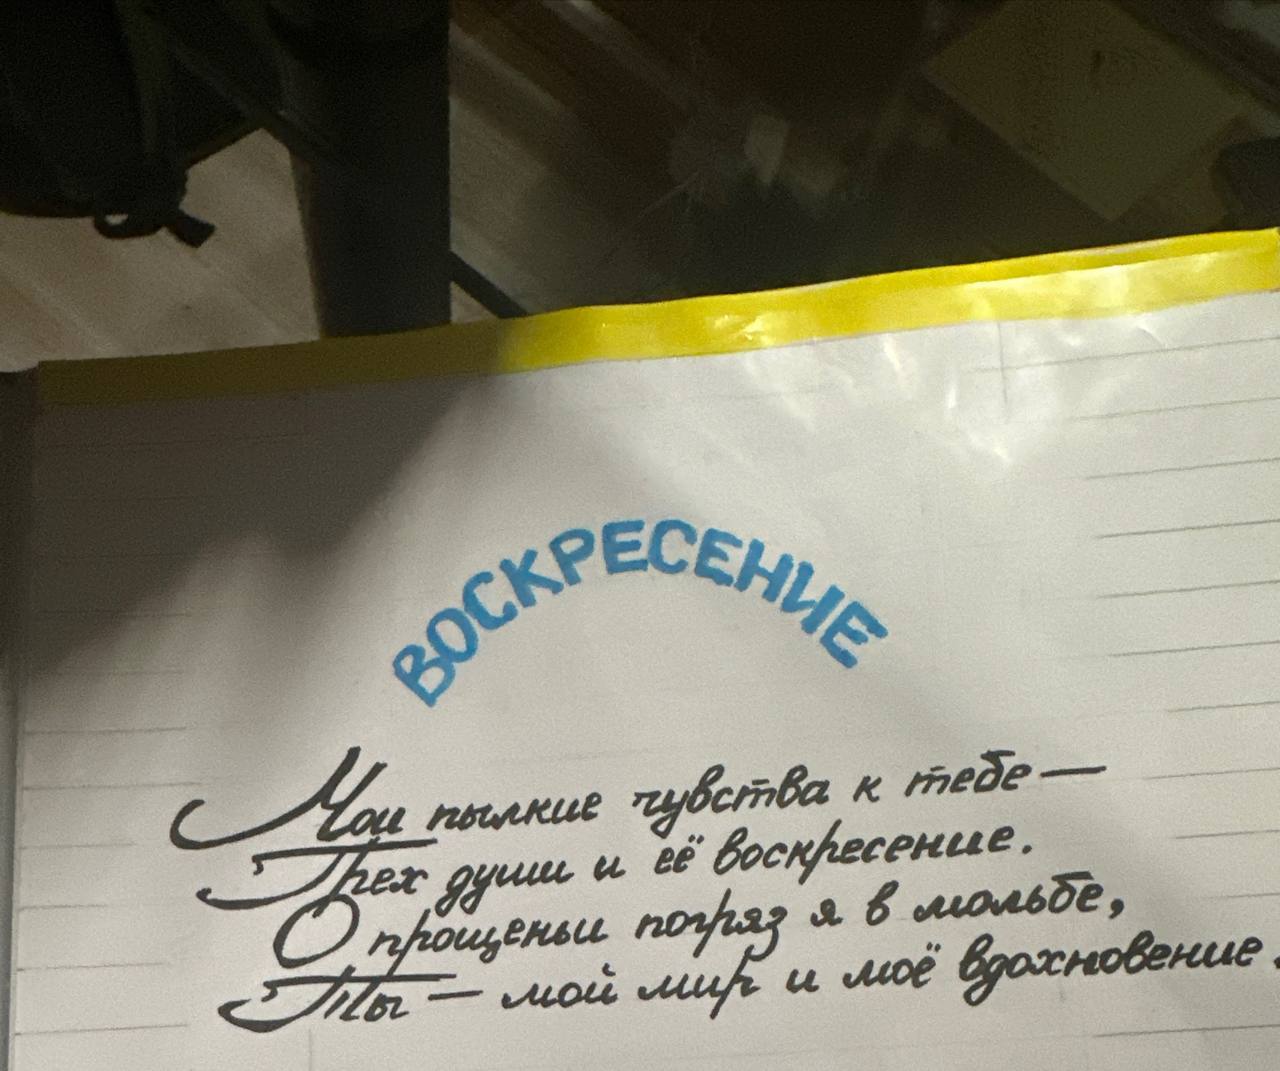 ВОСКРЕСЕНИЕ
Мои пылкие чувства к тебе —
Грех души и её воскресение.
О прощеньи погряз я в мольбе,
Ты — мой мир и моё вдохновение.